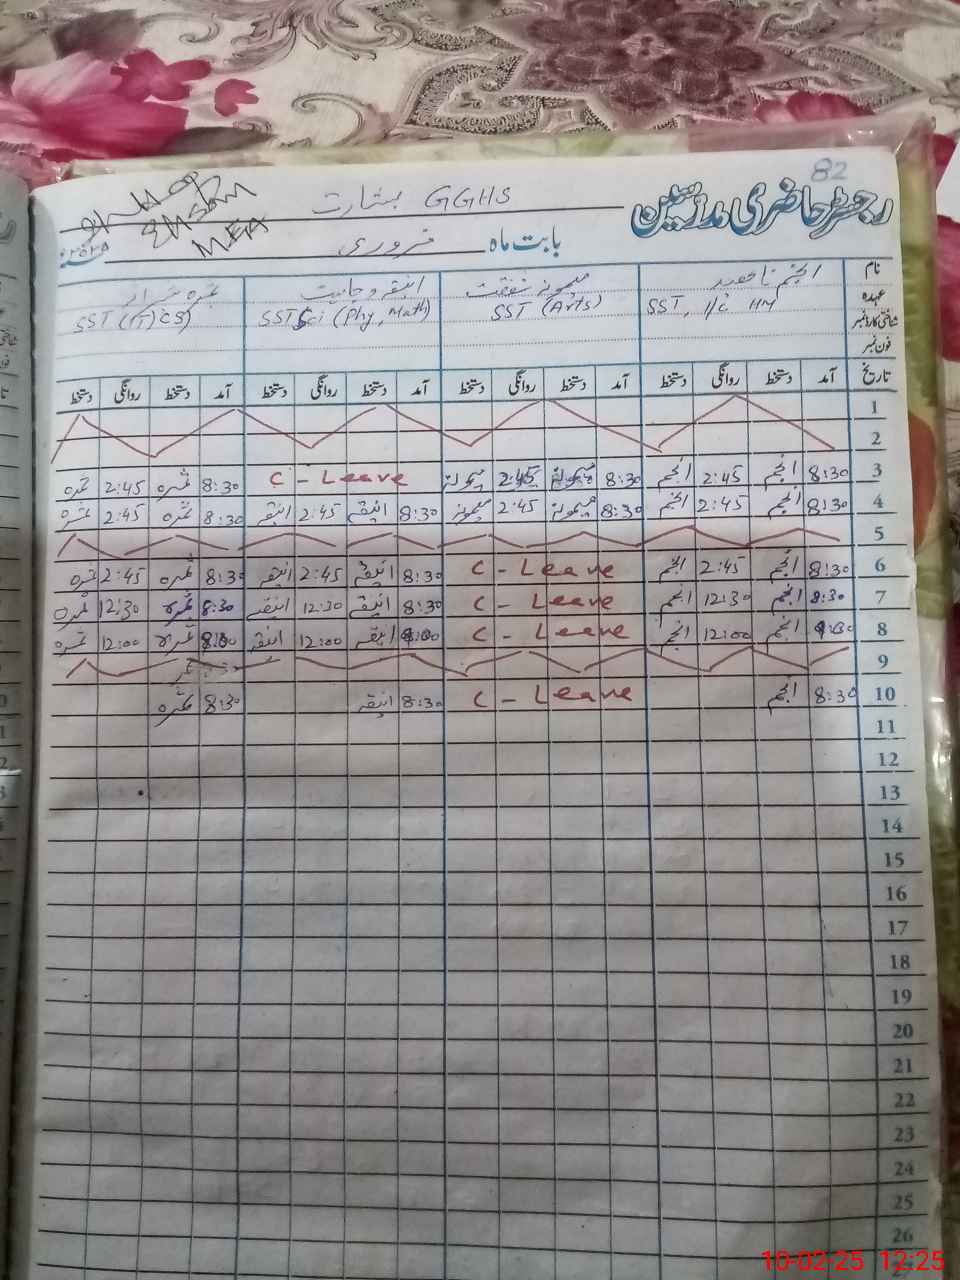 82
رجسٹر حاضری مدرسین GGHS بشارت
بابت ماہ فروری ۲۰۲۵ء
نام انجم ناہید میمونہ شفقت انیقہ وجاہت
عہدہ SST, I/C HM SST (Arts) SST Sci (Phy, Math) SST (IT) CS)
شناختی کارڈ نمبر
فون نمبر
تاریخ آمد دستخط روانگی دستخط آمد دستخط روانگی دستخط آمد دستخط روانگی دستخط آمد دستخط روانگی دستخط
1
2
3 8:30 انجم 2:45 انجم 8:30 میمونہ 2:45 میمونہ C - Leave 8:30 ثمرہ 2:45 ثمرہ
4 8:30 انجم 2:45 انجم 8:30 میمونہ 2:45 میمونہ 8:30 انیقہ 2:45 انیقہ 8:30 ثمرہ 2:45 ثمرہ
5
6 8:30 انجم 2:45 انجم C - Leave 8:30 انیقہ 2:45 انیقہ 8:30 ثمرہ 2:45 ثمرہ
7 8:30 انجم 12:30 انجم C - Leave 8:30 انیقہ 12:30 انیقہ 8:30 ثمرہ 12:30 ثمرہ
8 انجم 12:00 انجم C - Leave انیقہ 12:00 انیقہ ثمرہ 12:00 ثمرہ
9
10 8:30 انجم C - Leave 8:30 انیقہ 8:30 ثمرہ
11
12
13
14
15
16
17
18
19
20
21
22
23
24
25
26
10-02-25 12:25